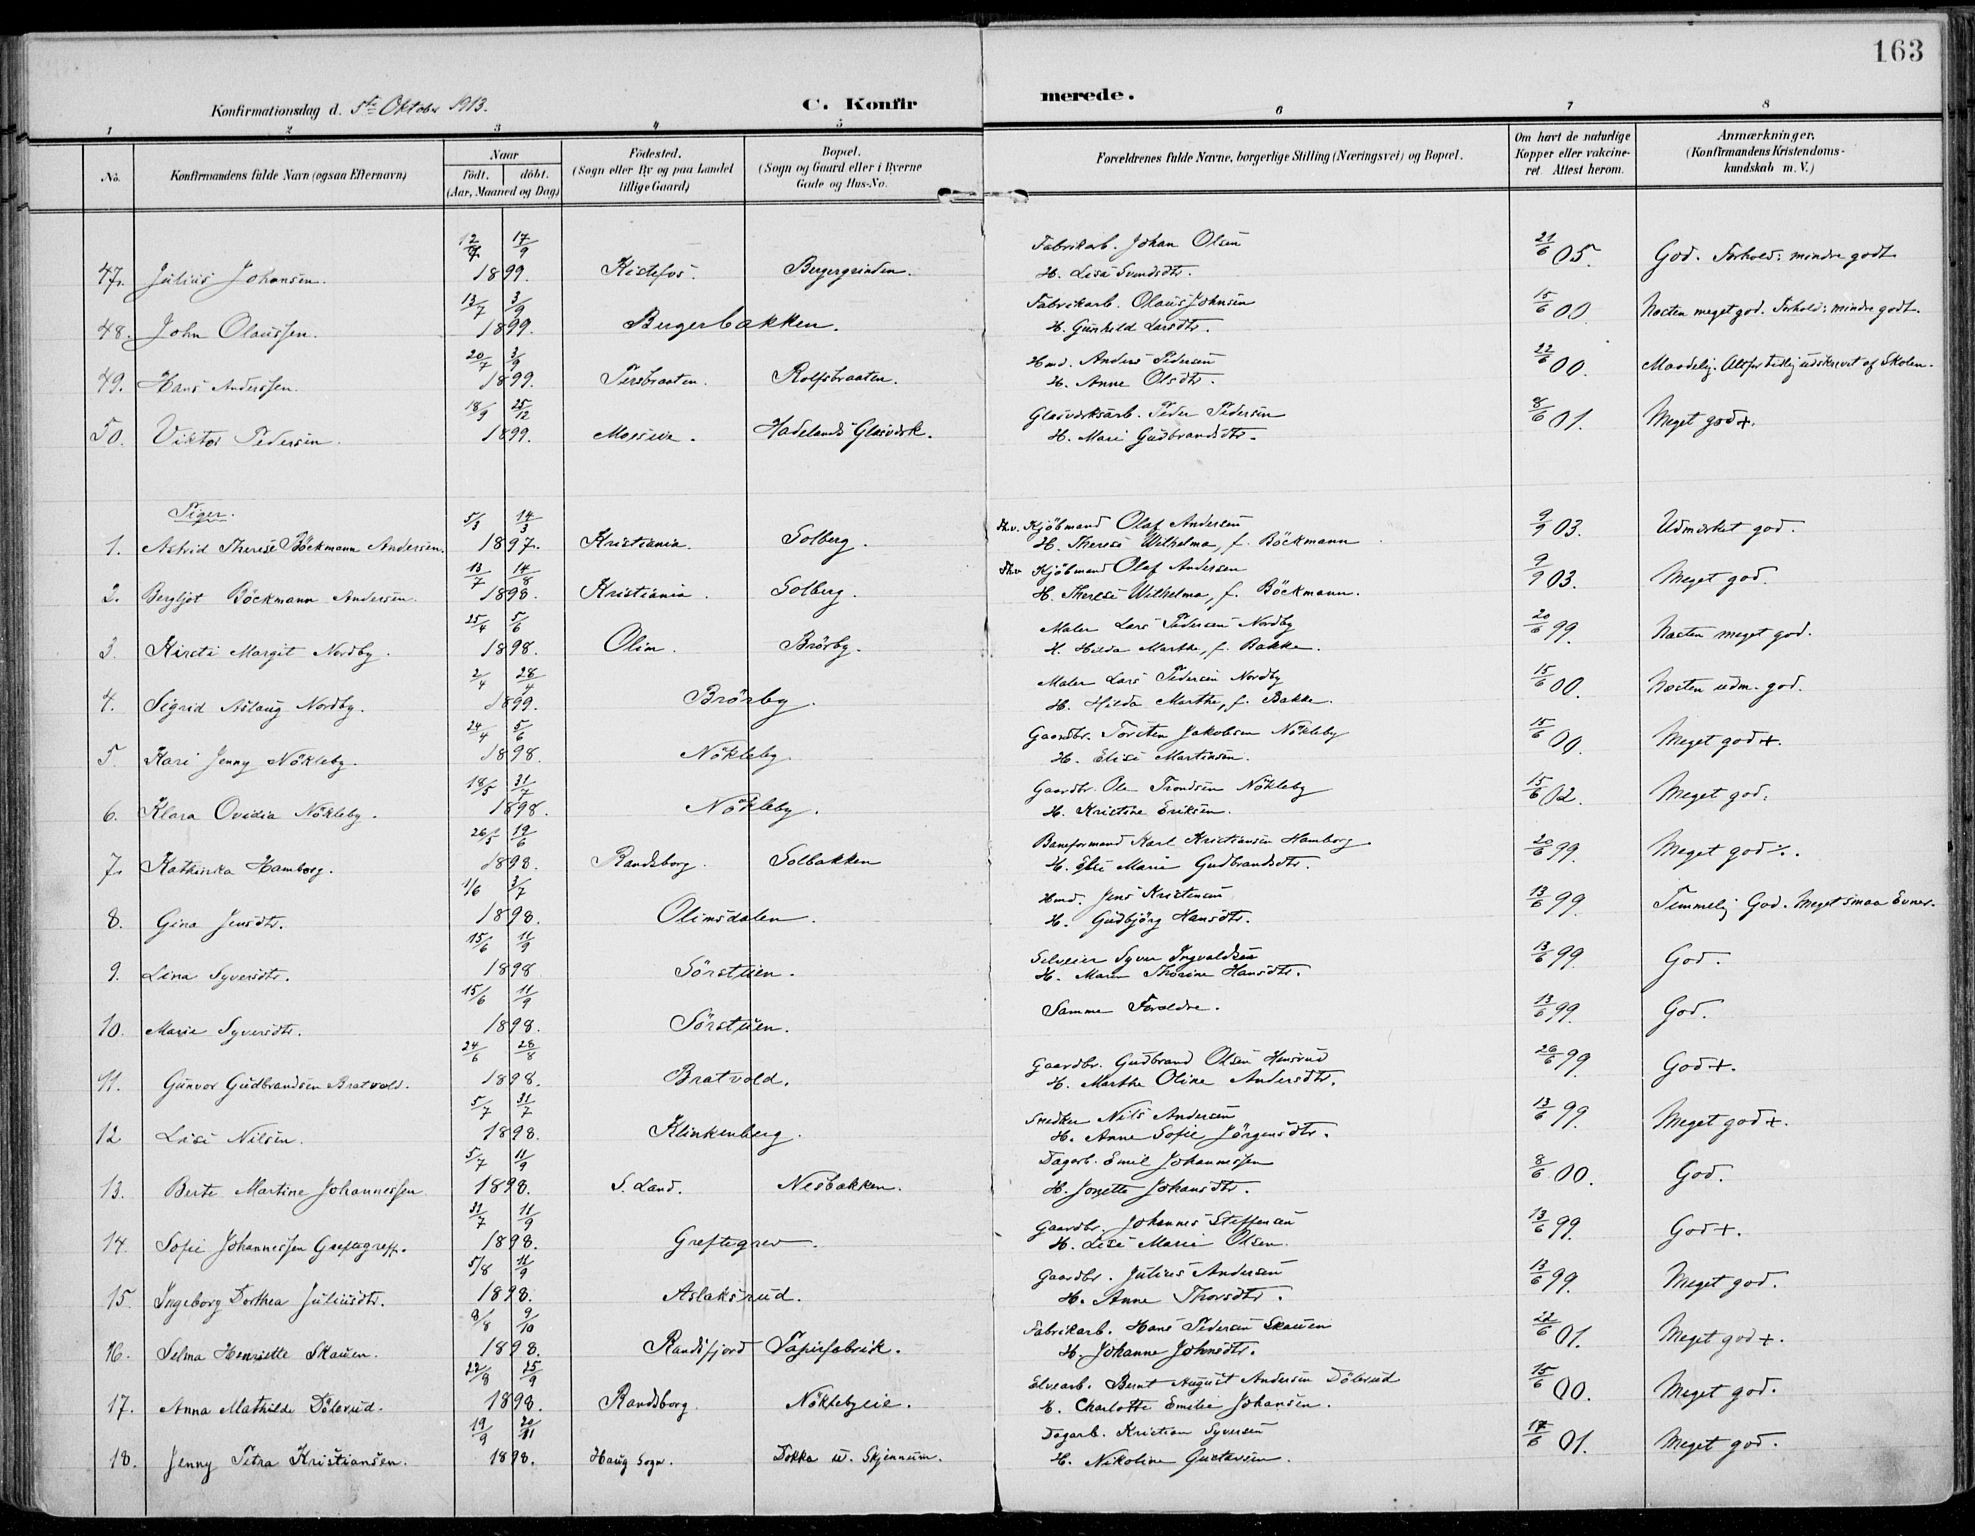 163
Konfirmationsdag d. 5te Oktober 1913. C. Konfirmerede.
1 2 3 4 5 6 7 8
No. Konfirmandens fulde Navn (ogsaa Efternavn) Naar født. døbt. (Aar, Maaned og Dag) Fødested. (Sogn eller By og paa Landet tillige Gaard) Bopæl. (Sogn og Gaard eller i Byerne Gade og Hus-No. Forældrenes fulde Navne, borgerlige Stilling (Næringsvei) og Bopæl. Om havt de naturlige Kopper eller vakcineret. Attest herom. Anmærkninger. (Konfirmandens Kristendomskundskab m. V.)
12/7 17/9 Fabrikarb. Johan Olsen 21/6 05.
47. Julius Johansen. 1899. Kistefos. Bergergrinden. H. Lisa Svendsdtr. God. Forhold: mindre godt.
13/7 3/9 Fabrikarb. Olaus Johnsen 15/6 00
48. John Olaussen. 1899. Bergerbakken. H. Gunhild Larsdtr. Næsten meget god. Forhold: mindre godt.
20/7 3/9 Hmd. Anders Pedersen 22/6 00.
49. Hans Anderssen. 1899. Persbraaten. Rolfsbraaten. H. Anne Olsdtr. Maadelig. Altfor tidlig udskrevet af Skolen.
18/9 25/12 Glasværksarb. Peder Pedersen 8/6 01.
50. Viktor Pedersen. 1899. Moseie. Hadelands Glasværk. H. Mari Gudbrandsdtr. Meget god+.
Piger.
5/3 14/3 Fhv. Kjøbmand Olaf Andersen 9/9 03.
1. Astrid Therese Böckmann Andersen. 1897. Kristiania. Solberg. H. Therese Wilhelma, f. Böckmann Udmærket god.
13/7 14/8 Fhv Kjöbmand Olaf Andersen 9/9 03.
2. Bergljot Böckmann Andersen. 1898. Kristiania. Solberg. H. Therese Wilhelma, f. Böckmann. Meget god.
25/4 5/6 Maler Lars Pedersen Nordby 20/6 99.
3. Kirsti Margit Nordby. 1898. Olim. Brörby. H. Hilda Marthe, f. Bakke. Næsten meget god.
2/4 28/4 Maler Lars Pedersen Nordby 15/6 00.
4. Sigrid Aslaug Nordby. 1899. Brörby. H. Hilda Marthe, f. Bakke. Næsten udm. god.
24/4 5/6 Gaardbr. Torsten Jakobsen Nökleby 15/6 00.
5. Kari Jenny Nökleby. 1898. Nökleby. H. Elise Martinsen. Meget god+.
18/5 31/7 Gaardbr. Ole Trondsen Nökleby 15/6 02.
6. Klara Ovidia Nökleby. 1898. Nökleby. H. Kristine Eriksen. Meget god.
26/5 19/6 Baneformand Karl Kristiansen Hamborg 20/6 99.
7. Kathinka Hamborg. 1898. Randsborg. Solbakken H. Marie Gudbrandsdtr. Meget god÷.
1/6 3/7 Hmd. Jens Kristensen 13/6 99.
8. Gina Jensdtr. 1898. Olimsdalen. H. Gudbjörg Hansdtr. Temmelig God. Meget smaa Evner.
15/6 11/9 Selveier Syver Ingvaldsen 13/6 99.
9. Lina Syversdtr. 1898 Sörstuen. H. Maren Thorine Hansdtr. God.
15/6 11/9 Samme Foreldre. 13/6 99.
10. Marie Syversdtr. 1898. Sörstuen. God.
24/6 28/8 Gaardbr. Gudbrand Olsen Hensrud 26/6 99
11. Gunvor Gudbrandsen Bratvold. 1898. Bratvold. H. Marthe Oline Andersdtr. God+.
5/7 31/7 Snedker Nils Andersen 13/6 99.
12 Lise Nilsen. 1898. Klinkenberg. H. Anne Sofie Jörgensdtr. Meget god+.
5/7 11/9 Dagarb. Emil Johannessen 8/6 00.
13. Berte Martine Johannessen 1898. S. Land. Nesbakken. H. Jonette Johansdtr. God.
31/7 11/9 Gaardbr. Johannes Steffensen 13/6 99.
14. Sofie Johannessen Greftegreff. 1898. Greftegrev. H. Lise Marie Olsen. God+.
5/8 11/9 Gaardbr. Julius Andersen 13/6 99.
15. Ingeborg Dorthea Juliusdtr. 1898. Aslaksrud. H. Anne Thorsdtr. Meget god.
8/8 9/10 Fabrikarb. Hans Pedersen Skauen 22/6 01.
16. Selma Henriette Skauen. 1898. Randsfjord Papirfabrik. H. Johanne Johnsdtr. Meget god+.
22/8 25/9 Elvearb. Bernt August Andersen Dölerud 15/6 00.
17. Anna Mathilde Dölerud. 1898. Randsborg. Nöklebyeie. H. Charlotte Emilie Johansen. Meget god.
19/9 20/11 Dagarb. Kristian Syversen 17/6 01.
18. Jenny Petra Kristiansen. 1898. Haug Sogn. Dokka u. Skjennum. H. Nikoline Gustavsen. Meget god.